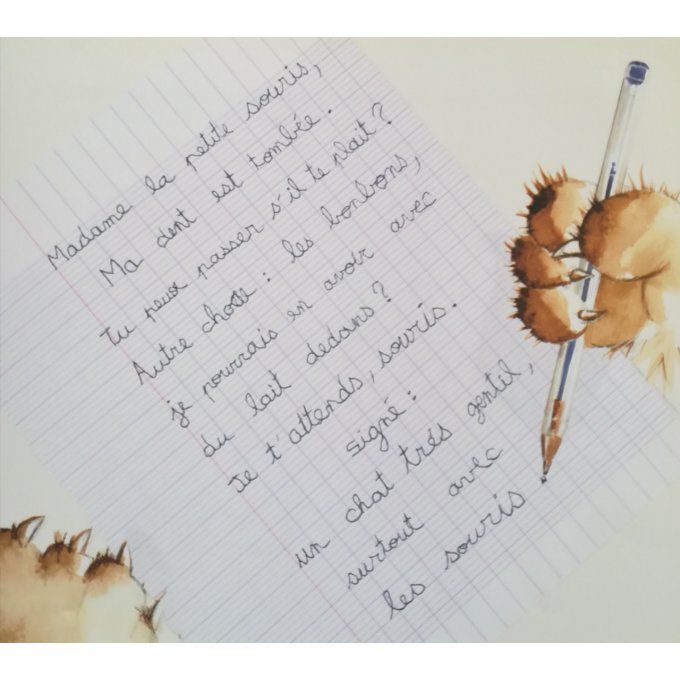 Madame la petite souris,
Ma dent est tombée.
Tu peux passer s'il te plait?
Autre chose : les bonbons,
je pourrais en avoir avec
du lait dedans?
Je t'attends, souris.
signé:
un chat trés gentil,
surtout avec
les souris.